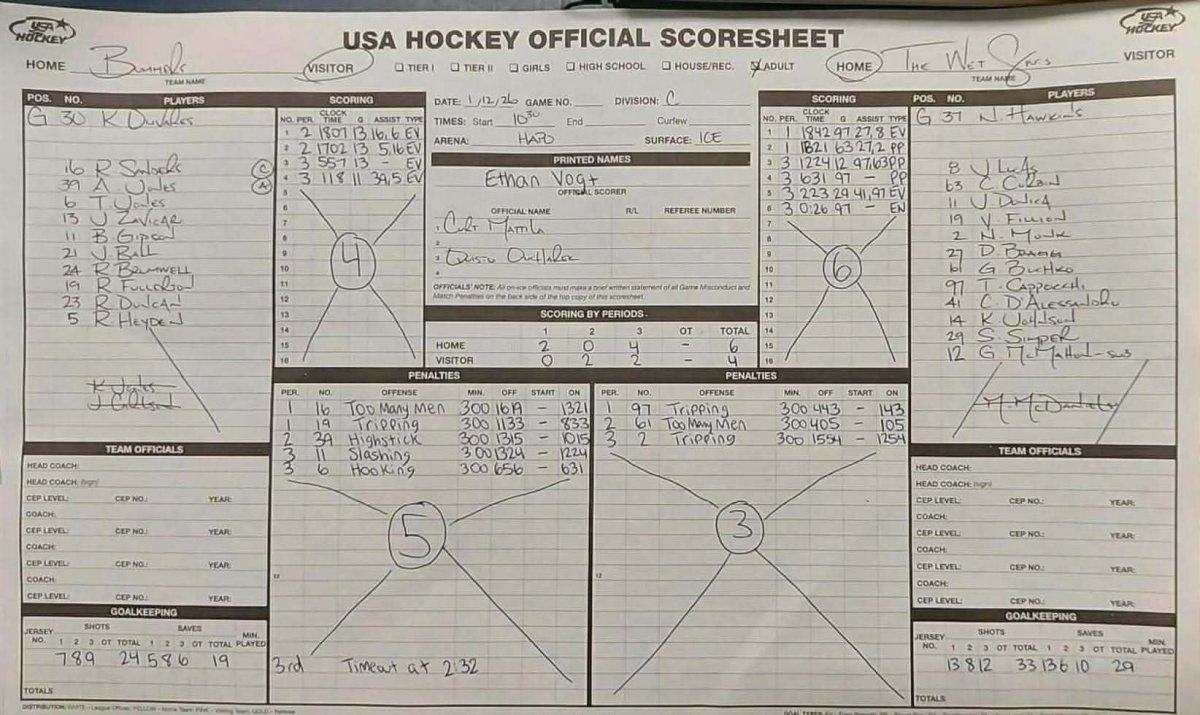 USA HOCKEY
USA HOCKEY OFFICIAL SCORESHEET
USA HOCKEY
HOME Bummers VISITOR TIER I TIER II GIRLS HIGH SCHOOL HOUSE/REC. ADULT HOME The Wet VISITOR
TEAM NAME TEAM NAME
POS. NO. PLAYERS
G 30 K
16 R
39 A. Jones
6 T. Jones
13 J Zavicar
11 B. Gipson
21 J. Ball
24 R Brumwell
19 R Fullerson
23 R Duncan
5 R. Heyden
K Jones
SCORING
NO. PER. CLOCK TIME G ASSIST TYPE
1 2 1807 13 16,6 EV
2 2 1702 13 5,16 EV
3 3 557 13 - EV
4 3 118 11 39,5 EV
5
6
7
8
9
10
11
12
13
14
15
16
4
DATE: 1/12/26 GAME NO. DIVISION: C
TIMES: Start 10:30 End Curfew
ARENA: HAPO SURFACE: ICE
PRINTED NAMES
Ethan Vogt
OFFICIAL SCORER
OFFICIAL NAME R/L REFEREE NUMBER
1. Curt Mattila
2
3
4
OFFICIALS' NOTE: All on-ice officials must make a brief written statement of all Game Misconduct and
Match Penalties on the back side of the top copy of this scoresheet.
SCORING BY PERIODS
1 2 3 OT TOTAL
HOME 2 0 4 - 6
VISITOR 0 2 2 - 4
SCORING
NO. PER. CLOCK TIME G ASSIST TYPE
1 1 1842 97 27,8 EV
2 1 1821 63 27,2 PP
3 3 1224 12 97,63 PP
4 3 631 97 - PP
5 3 223 29 41,97 EV
6 3 0:26 97 - EN
7
8
9
10
11
12
13
14
15
16
6
POS. NO. PLAYERS
G 37 N. Hawkins
8 J Lucas
63 C. Corbin
11 J
19 V. Fillion
2 N. Monk
27 D. Bragg
61 G Bushko
97 T. Cappocchi
41 C. D'Alessandro
14 K Johnson
29 S. Simper
12 G McMahon-sub
M. McDaniels
PENALTIES
PER. NO. OFFENSE MIN. OFF START ON
1 16 Too Many Men 300 1619 - 1321
1 19 Tripping 300 1133 - 833
2 39 Highstick 300 1315 - 1015
3 11 Slashing 300 1324 - 1224
3 6 Hooking 300 656 - 631
5
12
3rd Timeout at 2:32
PENALTIES
PER. NO. OFFENSE MIN. OFF START ON
1 97 Tripping 300 443 - 143
2 61 Too Many Men 300 405 - 105
3 2 Tripping 300 1554 - 1254
3
12
TEAM OFFICIALS
HEAD COACH:
HEAD COACH: (sign)
CEP LEVEL: CEP NO.: YEAR:
COACH:
CEP LEVEL: CEP NO.: YEAR:
COACH:
CEP LEVEL: CEP NO.: YEAR:
COACH:
CEP LEVEL: CEP NO.: YEAR:
GOALKEEPING
JERSEY NO. SHOTS SAVES MIN. PLAYED
1 2 3 OT TOTAL 1 2 3 OT TOTAL
7 8 9 24 5 8 6 19
TOTALS
TEAM OFFICIALS
HEAD COACH:
HEAD COACH: (sign)
CEP LEVEL: CEP NO.: YEAR:
COACH:
CEP LEVEL: CEP NO.: YEAR:
COACH:
CEP LEVEL: CEP NO.: YEAR:
COACH:
CEP LEVEL: CEP NO.: YEAR:
GOALKEEPING
JERSEY NO. SHOTS SAVES MIN. PLAYED
1 2 3 OT TOTAL 1 2 3 OT TOTAL
13 8 12 33 13 6 10 29
TOTALS
DISTRIBUTION: WHITE - League Offices YELLOW - Home Team PINK - Visiting Team GOLD - Referee